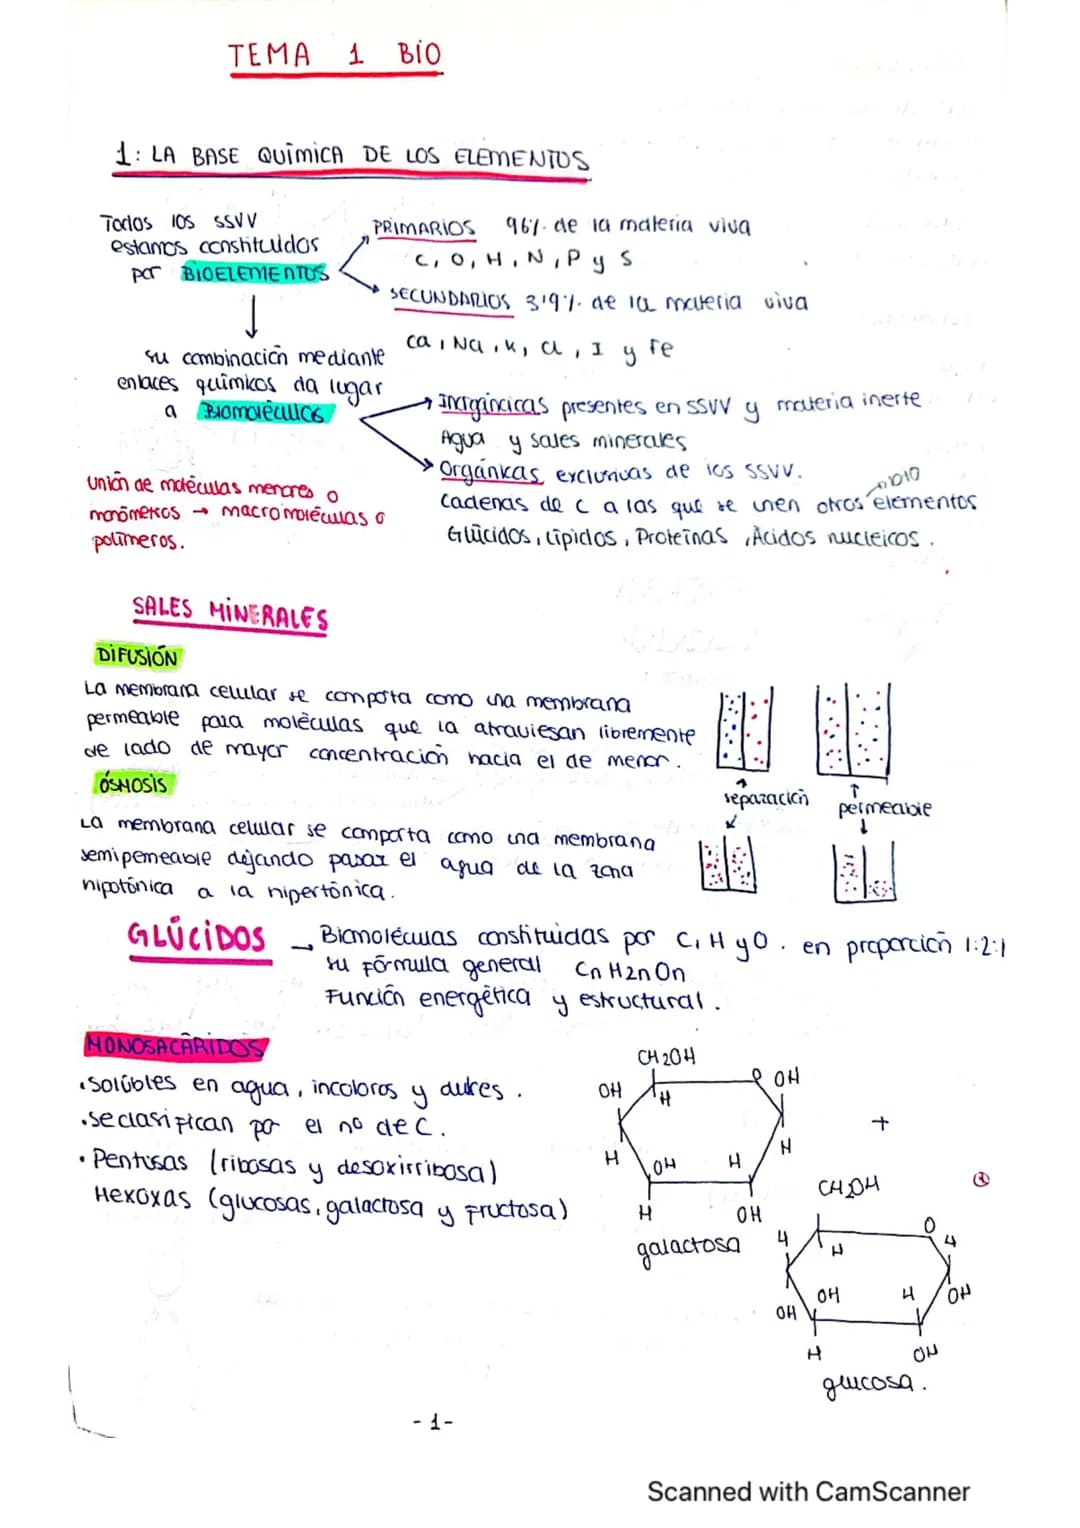 TEMA 1 BIO
1: LA BASE QUÍMICA DE LOS ELEMENTOS
Todos los SSVV
estamos constituidos
por BIOELEMENTOS
PRIMARIOS 96% de la materia viva
C, O, H, N, P y S
SECUNDARIOS 3'9% de la materia viva
Ca, Na, K, Cl, I y Fe
su combinación mediante
enlaces químicos da lugar
a Biomoléculas
Inorgánicas presentes en SSVV y materia inerte
Agua y sales minerales
Orgánicas exclusivas de los SSVV.
bio
Cadenas de C a las que se unen otros elementos
Glúcidos, Lípidos, Proteínas, Ácidos nucleicos.
Unión de moléculas menores o
monómeros → macromoléculas o
polímeros.
SALES MINERALES
DIFUSIÓN
La membrana celular se comporta como una membrana
permeable para moléculas que la atraviesan libremente
de lado de mayor concentración hacia el de menor.
separación
permeable
ÓSMOSIS
La membrana celular se comporta como una membrana
semipemeable dejando pasar el agua de la zona
hipotónica a la hipertónica.
GLÚCIDOS → Biomoléculas constituidas por C, H y O. en proporción 1:2:1
su fórmula general Cn H2n On
Función energética y estructural.
MONOSACÁRIDOS
• Solúbles en agua, incoloros y dulces.
• se clasifican por el nº de C.
• Pentosas (ribosas y desoxirribosa)
Hexoxas (glucosas, galactosa y fructosa)
CH2OH
OH
H
O
OH
H
H
OH
H
H
OH
galactosa
+
CH2OH
H
H
O
H
OH
OH
OH
H
H
OH
glucosa.
-1-
Scanned with CamScanner